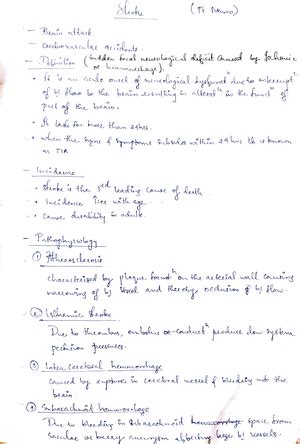 Stroke (PT Neuro)
- Brain attack
- Cerebrovascular accidents.
- Definition (sudden focal neurological deficit caused by Ischemic or hemorrhage).
• It is an acute onset of neurological dysfunctn due to interrupt
of bld flow to the brain resulting in alteratn in the functn of
part of the brain.
• It lasts for more than 24hrs.
• when the signs & symptoms subsides within 24 hrs it is known
as TIA
- Incidence
• stroke is the 3rd leading cause of death.
• Incidence ↑ses with age.
• cause disability in adults.
- Pathophysiology
① Atherosclerosis
characterized by plaque formatn on the arterial wall causing
narrowing of bld vessel and thereby occlusion of bld flow.
② Ischemic stroke
Due to thrombus, embolus or conductn produce low system
perfusion pressures.
③ Intra cerebral hemorrhage
caused by rupture in cerebral vessel & bleeding into the
brain
④ Subarachnoid hemorrhage
Due to bleeding in subarachnoid space from
saccular or berry aneurysm affecting large bld vessels.